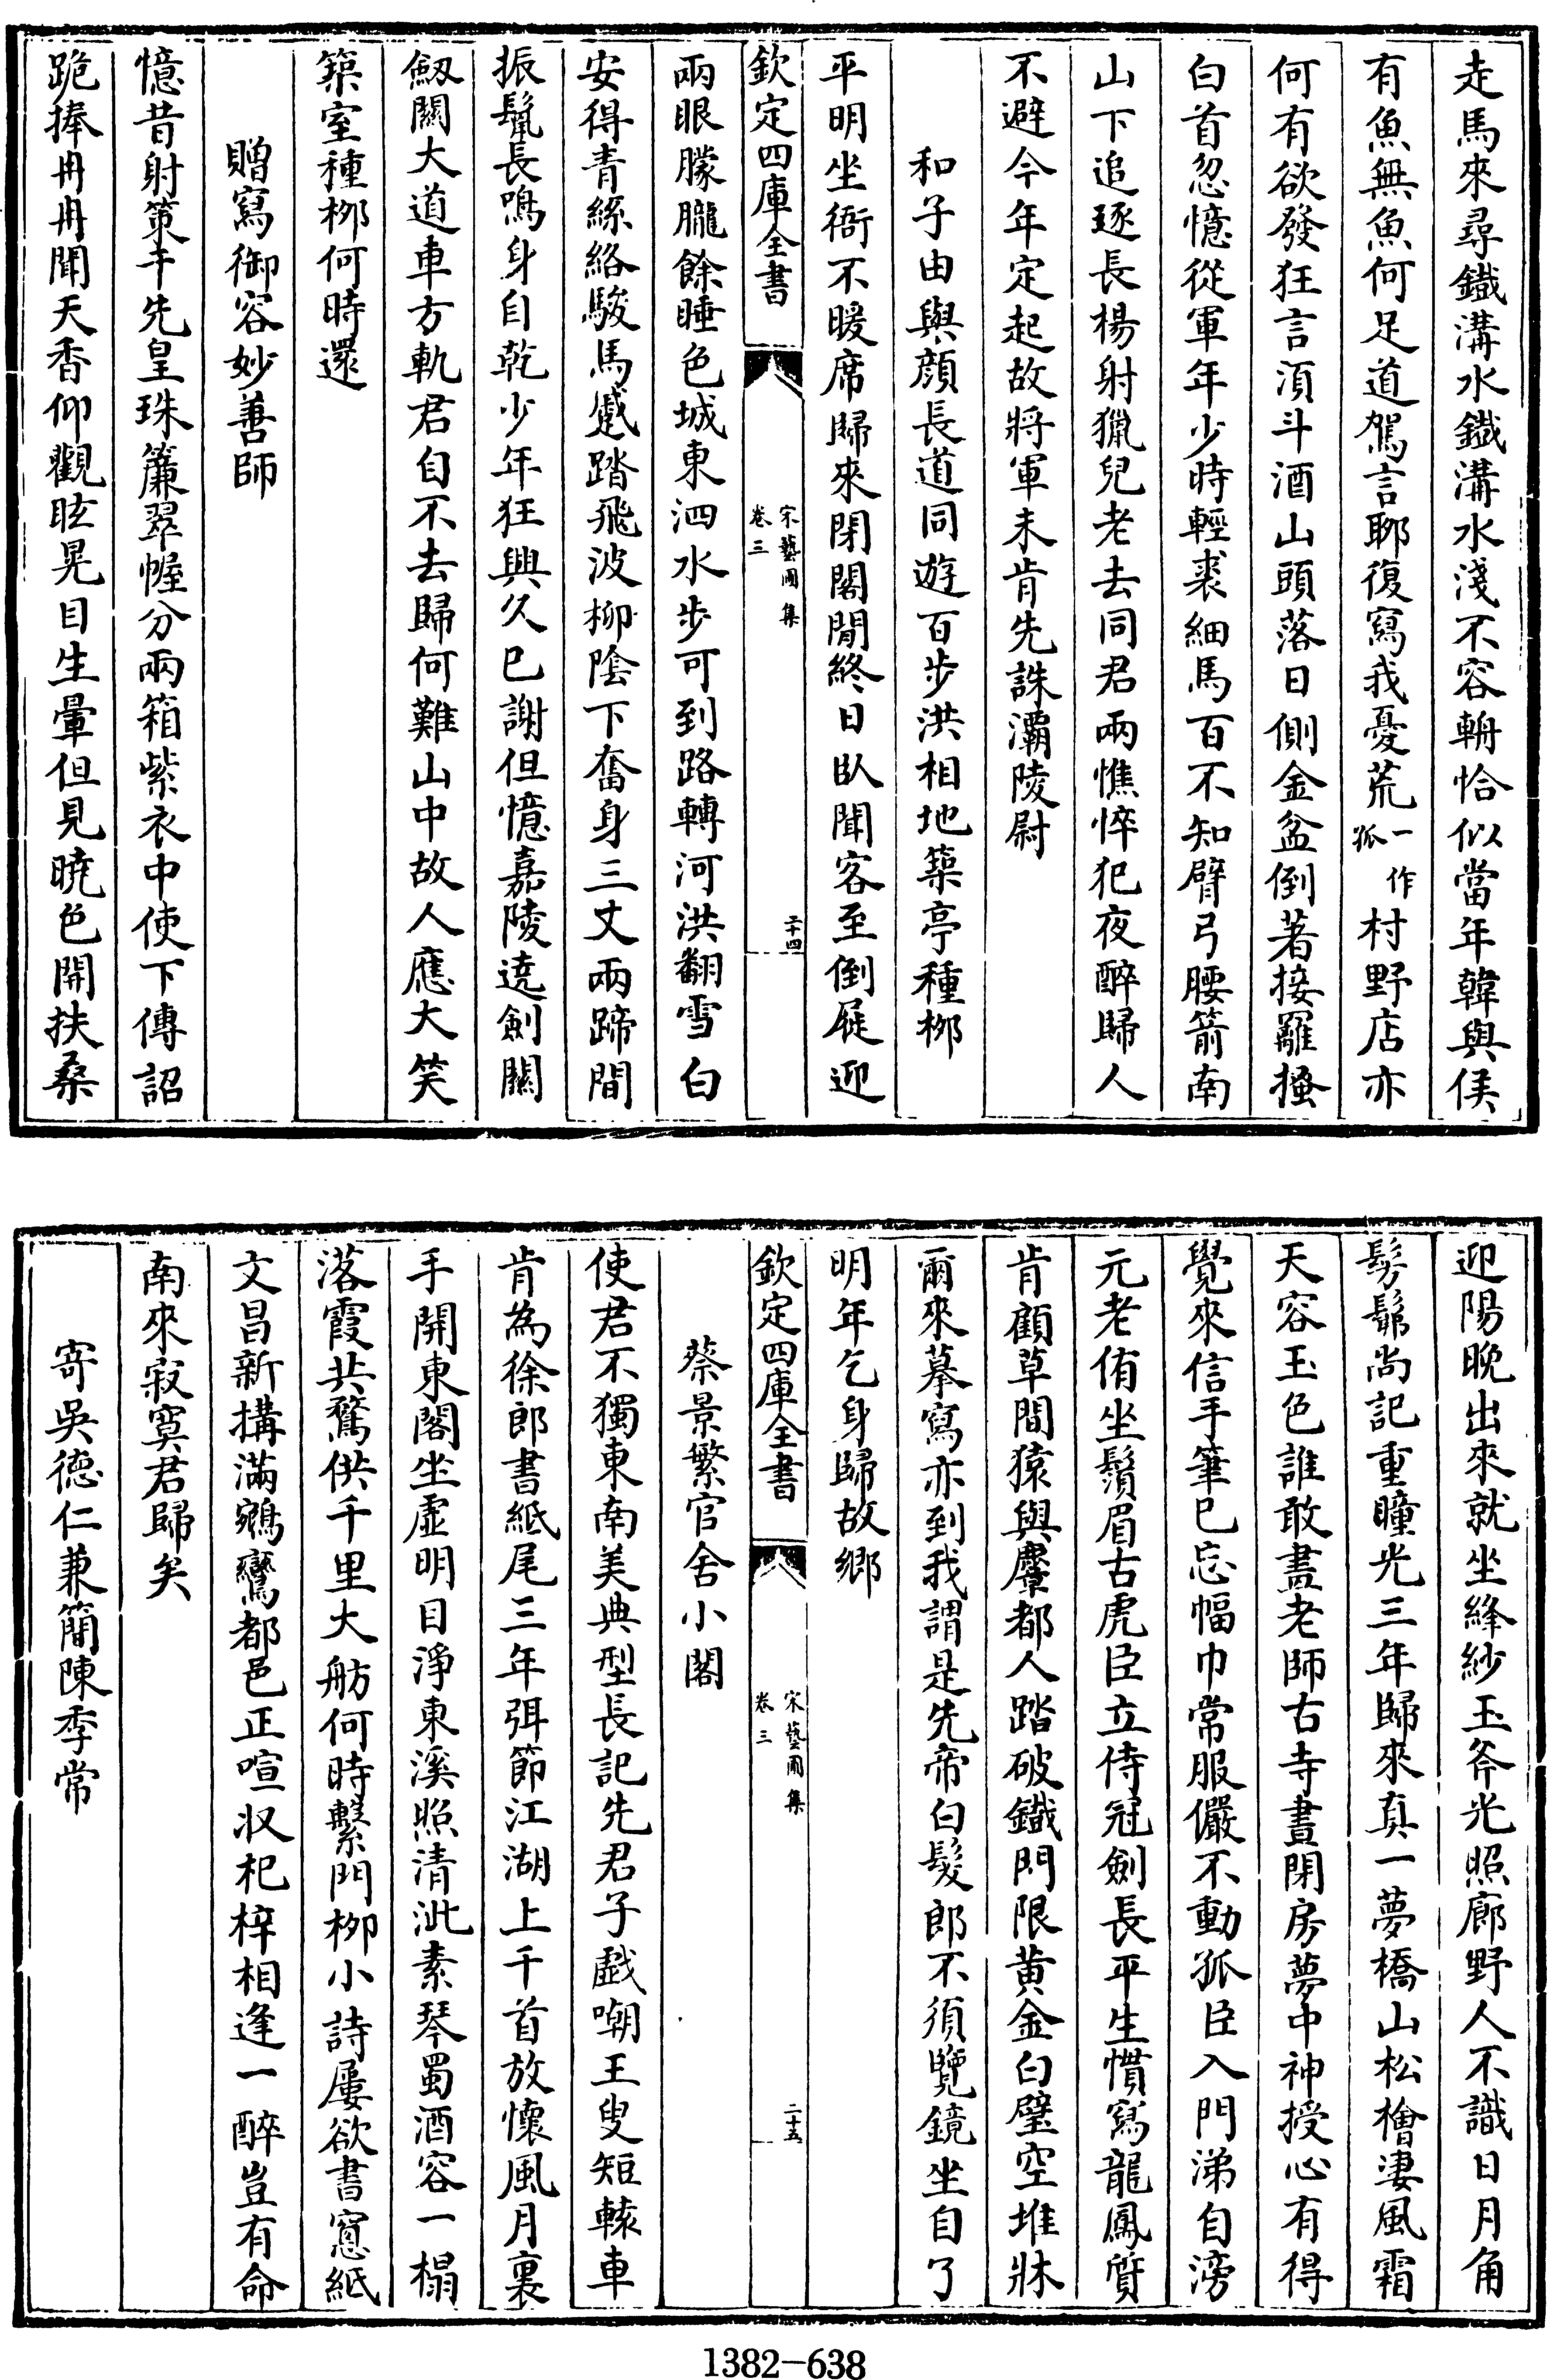 走馬來尋鐵溝水鐵溝水淺不容輈恰似當年韓與侯
有魚無魚何足道駕言聊復寫我憂荒一作孤村野店亦
何有欲發狂言湏斗酒山頭落日側金盆倒著接䍦搔
白首忽憶從軍年少時輕裘細馬百不知臂弓腰箭南
山下追逐長楊射獵兒老去同君兩憔悴犯夜醉歸人
不避今年定起故將軍未肯先誅灞陵尉
和子由與顔長道同遊百步洪相地築亭種栁
平明坐衙不暖席歸來閉閤閒終日臥聞客至倒屣迎
欽定四庫全書
宋藝圃集
卷三
二十四
兩眼朦朧餘睡色城東泗水步可到路轉河洪翻雪白
安得青絲絡駿馬蹙踏飛波柳陰下奮身三丈兩蹄間
振鬛長鳴身自乾少年狂興久已謝但憶嘉陵遶劍關
劔關大道車方軌君自不去歸何難山中故人應大笑
築室種栁何時還
贈寫御容妙善師
憶昔射策干先皇珠簾翠幄分兩箱紫衣中使下傳詔
跪捧冉冉聞天香仰觀眩晃目生暈但見曉色開扶桑
迎陽晚出來就坐絳紗玉斧光照廊野人不識日月角
髣髴尚記重瞳光三年歸來真一夢橋山松檜凄風霜
天容玉色誰敢畫老師古寺晝閉房夢中神授心有得
覺來信手筆已忘幅巾常服儼不動孤臣入門涕自滂
元老侑坐鬚眉古虎臣立侍冠劍長平生慣寫龍鳳質
肯顧草間猿與麞都人踏破鐵門限黄金白璧空堆牀
爾來摹寫亦到我謂是先帝白髮郎不須覽鏡坐自了
明年乞身歸故鄉
欽定四庫全書
宋藝圃集
卷三
二十五
蔡景繁官舍小閣
使君不獨東南美典型長記先君子戲嘲王叟短轅車
肯為徐郎書紙尾三年弭節江湖上千首放懷風月裏
手開東閣坐虛明目淨東溪照清泚素琴蜀酒容一榻
落霞共鶩供千里大舫何時繫門栁小詩屢欲書窻紙
文昌新搆滿鵷鸞都邑正喧収杞梓相逢一醉豈有命
南來寂寞君歸矣
寄吳德仁兼簡陳季常
1382-638